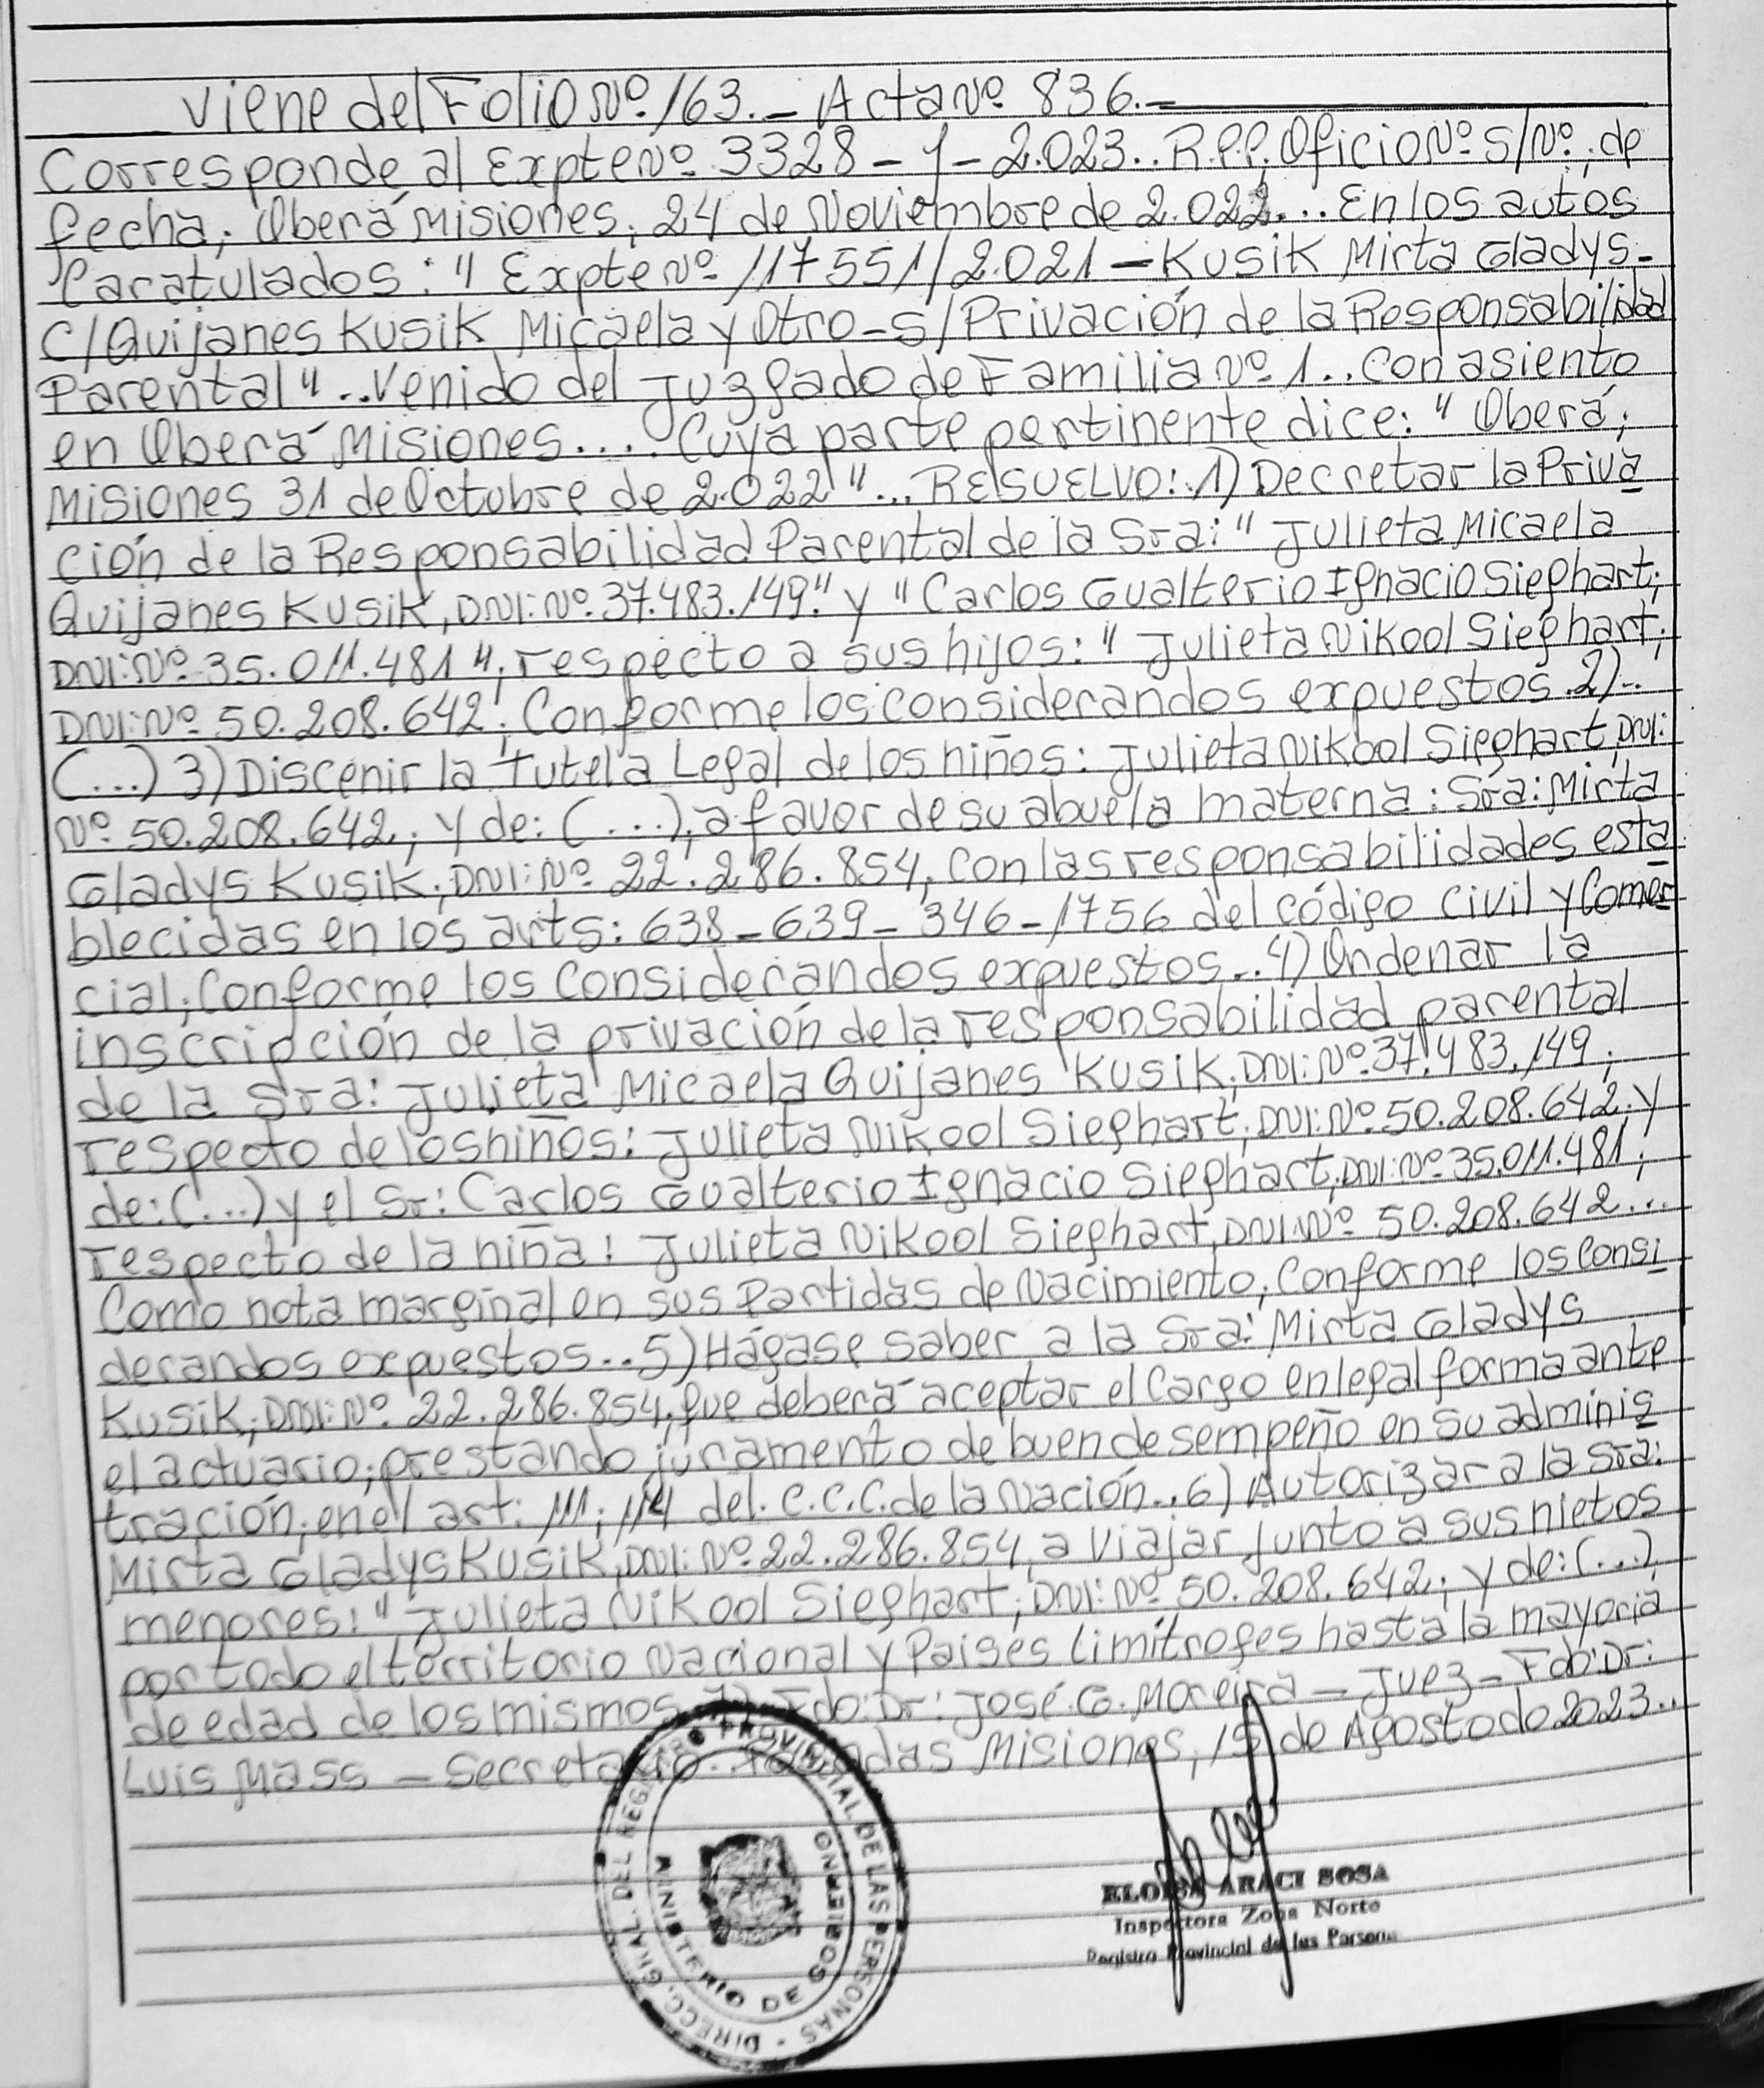 Viene del Folio Nº 163.- Acta Nº 836.-
Corresponde al Expte Nº 3328 - Y - 2.023.. R.P.P. Oficio Nº S/Nº, de
fecha; Oberá Misiones, 24 de Noviembre de 2.022... En los autos
Caratulados: " Expte Nº 117551/2.021 - Kusik Mirta Gladys -
C/Quijanes Kusik Micaela y Otro - S/Privación de la Responsabilidad
Parental".. Venido del Juzgado de Familia Nº 1.. Con asiento
en Oberá Misiones.... Cuya parte pertinente dice: " Oberá;
Misiones 31 de Octubre de 2.022"... RESUELVO: 1) Decretar la Priva
ción de la Responsabilidad Parental de la Sra: " Julieta Micaela
Quijanes Kusik, DNI: Nº. 37.483.149." y " Carlos Gualterio Ignacio Sieghart;
DNI: Nº 35.011.481"; respecto a sus hijos: " Julieta Nikool Sieghart;
DNI: Nº 50.208.642; Conforme los considerandos expuestos. 2)..
(...) 3) Discenir la Tutela Legal de los niños: Julieta Nikool Sieghart, DNI:
Nº 50.208.642; y de: (...), a favor de su abuela materna: Sra: Mirta
Gladys Kusik; DNI: Nº 22.286.854, con las responsabilidades esta
blecidas en los arts: 638 - 639 - 346 - 1756 del código civil y Comer
cial; Conforme los Considerandos expuestos.. 4) Ordenar la
inscripción de la privación de la responsabilidad parental
de la Sra: Julieta Micaela Quijanes Kusik; DNI: Nº 37.483.149;
respecto de los niños: Julieta Nikool Sieghart; DNI: Nº 50.208.642. y
de: (...) y el Sr: Carlos Gualterio Ignacio Sieghart; DNI: Nº 35.011.481;
respecto de la niña: Julieta Nikool Sieghart, DNI: Nº 50.208.642...
Como nota marginal en sus Partidas de Nacimiento; Conforme los Consi
derandos expuestos.. 5) Hágase saber a la Sra: Mirta Gladys
Kusik; DNI: Nº 22.286.854, que deberá aceptar el Cargo en legal forma ante
el actuario; prestando juramento de buen desempeño en su adminis
tración; en el art: 111; 114 del. C.C.C. de la Nación.. 6) Autorizar a la Sra:
Mirta Gladys Kusik, DNI: Nº 22.286.854, a viajar junto a sus nietos
menores: " Julieta Nikool Sieghart; DNI: Nº 50.208.642; y de: (...)
por todo el territorio Nacional y Paises limítrofes hasta la mayoria
de edad de los mismos. Fdo: Dr: José. G. Moreira - Juez - Fdo: Dr:
Luis Mass - Secretario.. Posadas Misiones, 15 de Agosto de 2023..
DIRECC. GRAL. DEL REGISTRO PROVINCIAL DE LAS PERSONAS -
MINISTERIO DE GOBIERNO
ELOISA ARACI SOSA
Inspectora Zona Norte
Registro Provincial de las Persona